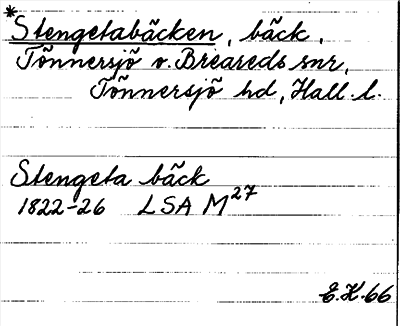 *Stengetabäcken, bäck.
Tönnersjö o. Breareds snr,
Tönnersjö hd, Hall. l.
Stengeta bäck
1822-26 LSA M27
E.H.66